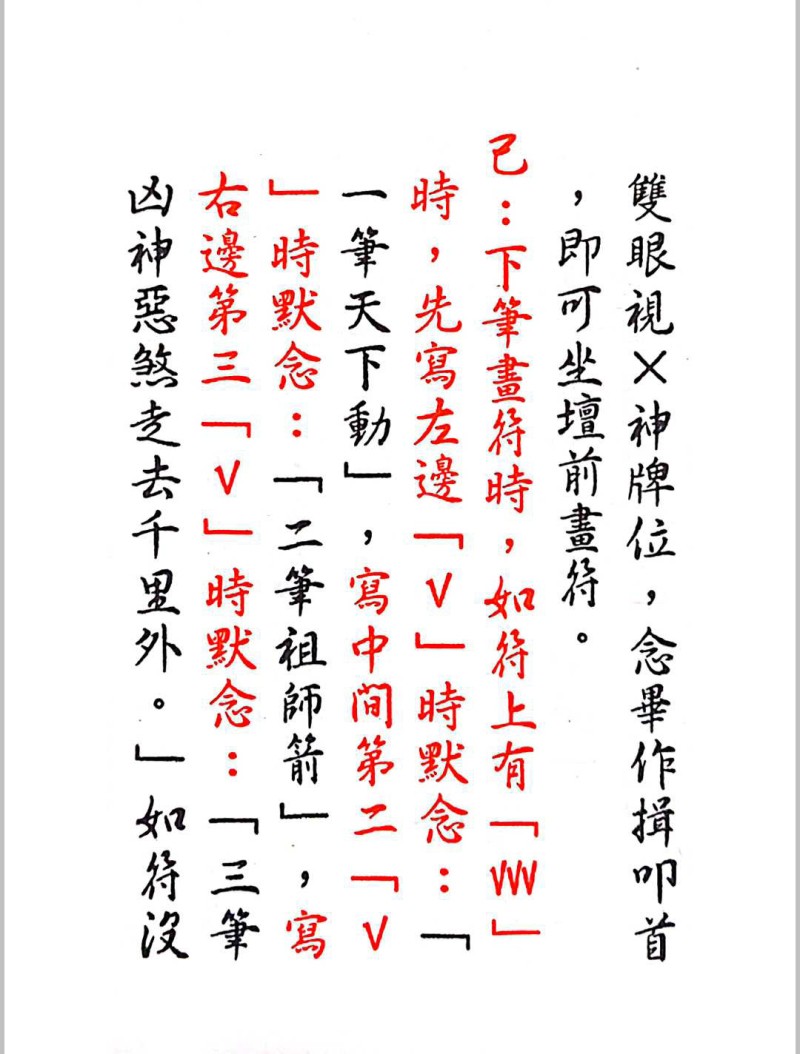 雙眼視×神牌位，念畢作揖叩首
，即可坐壇前畫符。
己：下筆畫符時，如符上有「VVV」
時，先寫左邊「V」時默念：「
一筆天下動」，寫中間第二「V
」時默念：「二筆祖師箭」，寫
右邊第三「V」時默念：「三筆
凶神惡煞走去千里外。」如符沒